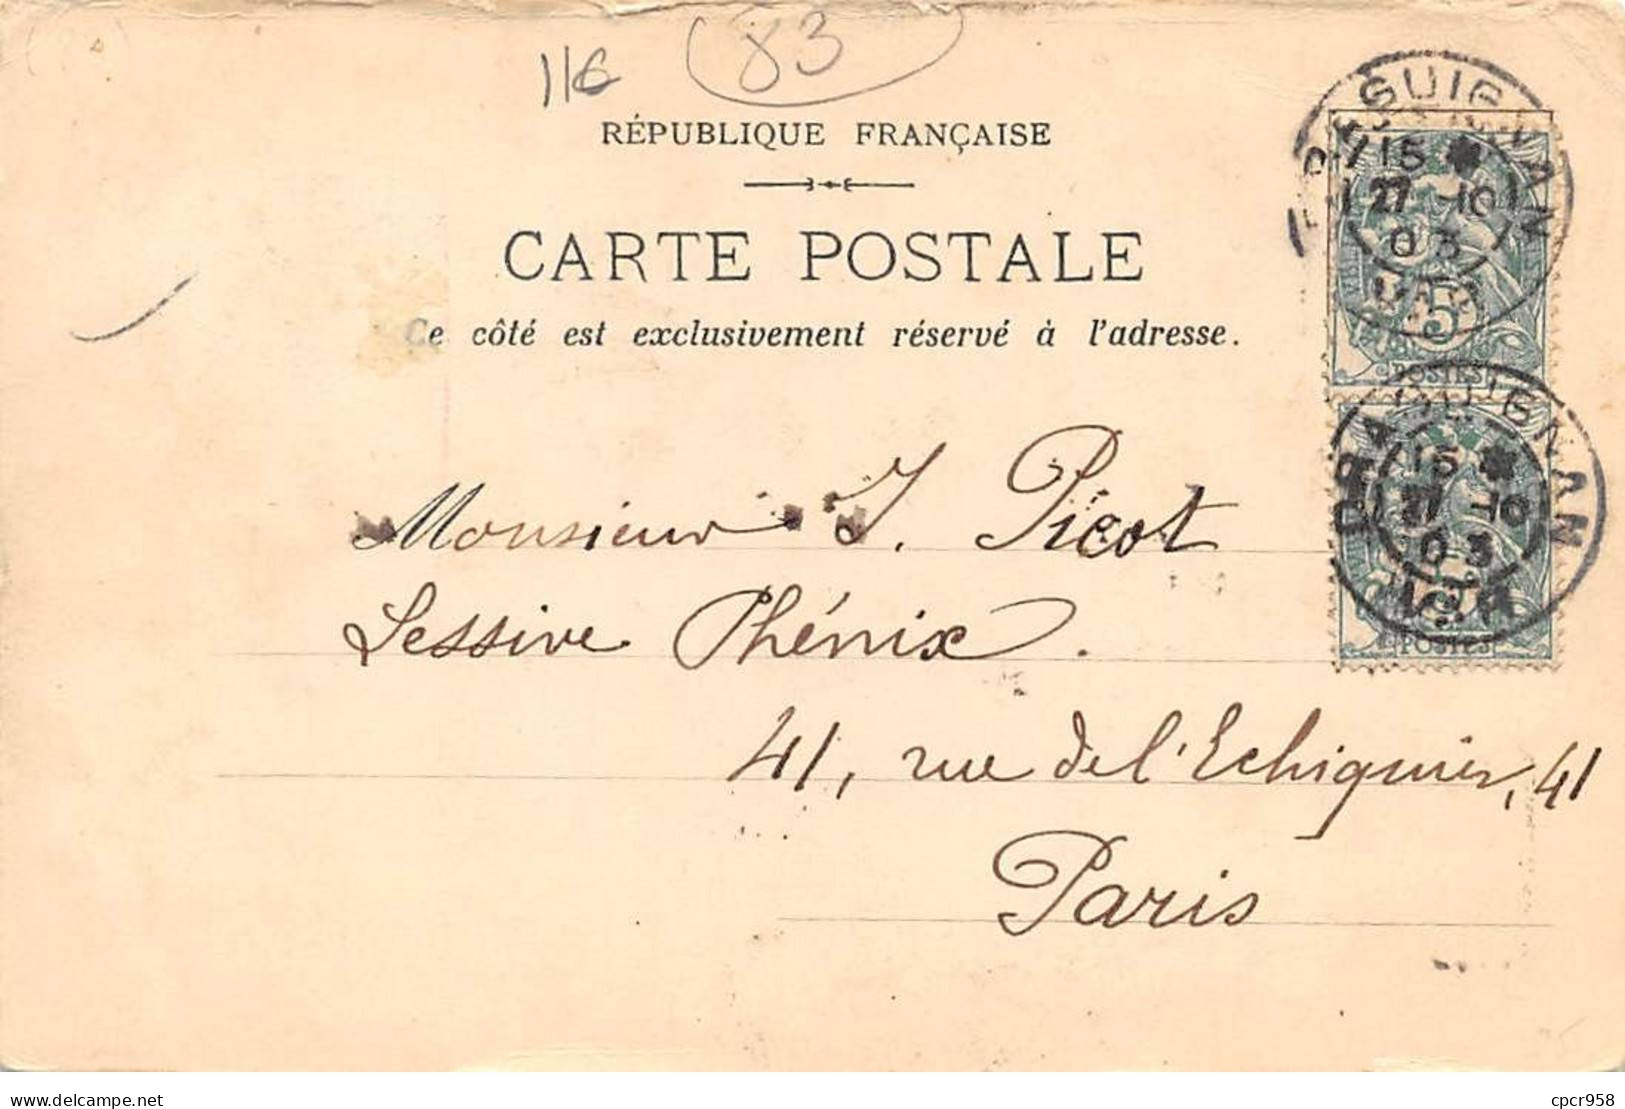 11€ 83
RÉPUBLIQUE FRANÇAISE
CARTE POSTALE
Ce côté est exclusivement réservé à l'adresse.
DRAGUIGNAN
15 *
27 -10
03
VAR
5
POSTES
DRAGUIGNAN
15 *
27 -10
03
VAR
POSTES
Monsieur J. Picot
Lessive Phénix.
41, rue de l'Echiquier, 41
Paris
www.delcampe.net
cpcr958